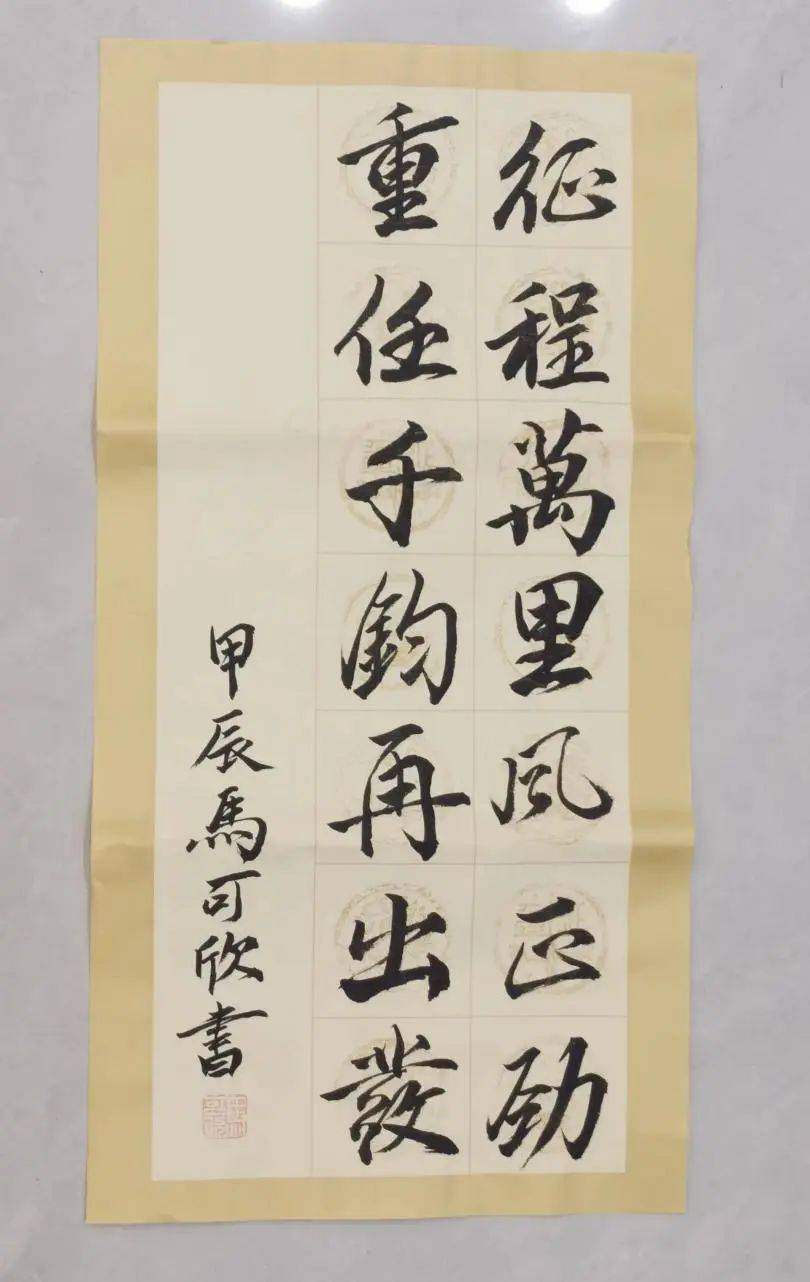 征程萬里風正勁
重任千鈞再出發
甲辰馬可欣書